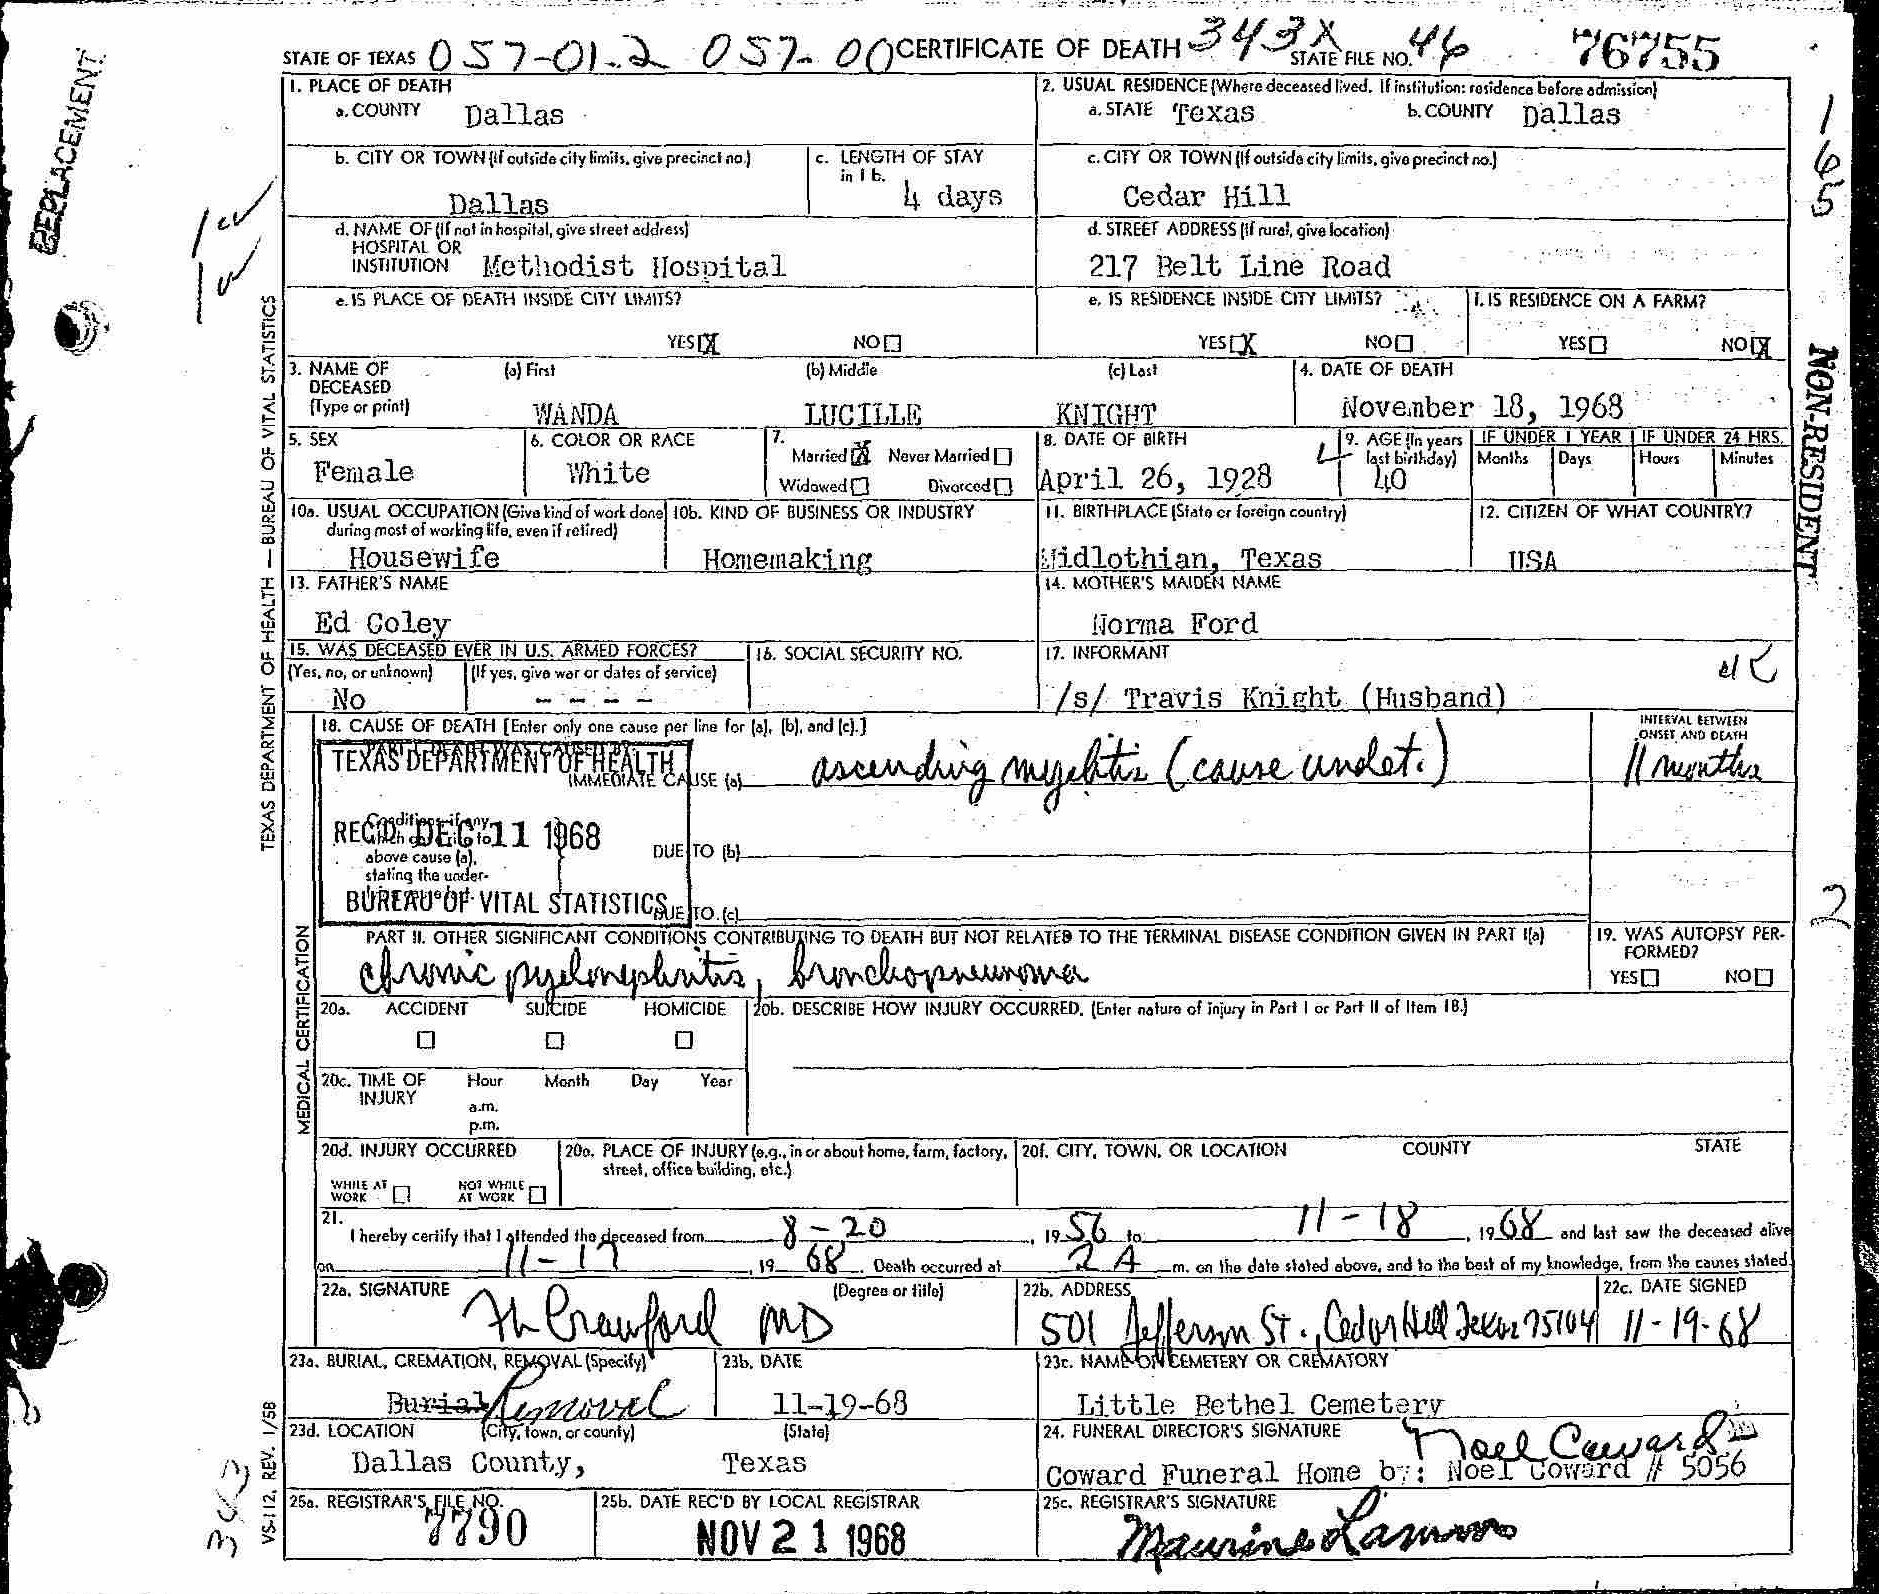 STATE OF TEXAS 057-01.2 057-00 CERTIFICATE OF DEATH 343X STATE FILE NO. 46 76755
REPLACEMENT
1. PLACE OF DEATH
a. COUNTY Dallas
2. USUAL RESIDENCE (Where deceased lived. If institution: residence before admission)
a. STATE Texas b. COUNTY Dallas
165
b. CITY OR TOWN (If outside city limits, give precinct no.)
Dallas
c. LENGTH OF STAY
in 1 b.
4 days
c. CITY OR TOWN (If outside city limits, give precinct no.)
Cedar Hill
d. NAME OF (If not in hospital, give street address)
HOSPITAL OR
INSTITUTION Methodist Hospital
d. STREET ADDRESS (If rural, give location)
217 Belt Line Road
e. IS PLACE OF DEATH INSIDE CITY LIMITS?
YES X NO
e. IS RESIDENCE INSIDE CITY LIMITS?
YES X NO
f. IS RESIDENCE ON A FARM?
YES NO X
NON-RESIDENT
3. NAME OF
DECEASED
(Type or print)
(a) First (b) Middle (c) Last
WANDA LUCILLE KNIGHT
4. DATE OF DEATH
November 18, 1968
5. SEX
Female
6. COLOR OR RACE
White
7.
Married X Never Married
Widowed Divorced
8. DATE OF BIRTH
April 26, 1928
4
9. AGE (In years
last birthday)
40
IF UNDER 1 YEAR
Months Days
IF UNDER 24 HRS.
Hours Minutes
10a. USUAL OCCUPATION (Give kind of work done
during most of working life, even if retired)
Housewife
10b. KIND OF BUSINESS OR INDUSTRY
Homemaking
11. BIRTHPLACE (State or foreign country)
Midlothian, Texas
12. CITIZEN OF WHAT COUNTRY?
USA
13. FATHER'S NAME
Ed Coley
14. MOTHER'S MAIDEN NAME
Norma Ford
15. WAS DECEASED EVER IN U.S. ARMED FORCES?
(Yes, no, or unknown) (If yes, give war or dates of service)
No - - - -
16. SOCIAL SECURITY NO.
17. INFORMANT
/s/ Travis Knight (Husband)
TEXAS DEPARTMENT OF HEALTH — BUREAU OF VITAL STATISTICS
18. CAUSE OF DEATH [Enter only one cause per line for (a), (b), and (c).]
PART I. DEATH WAS CAUSED BY:
IMMEDIATE CAUSE (a) ascending myelitis (cause undet.)
INTERVAL BETWEEN
ONSET AND DEATH
11 months
TEXAS DEPARTMENT OF HEALTH
REC'D DEC 11 1968
BUREAU OF VITAL STATISTICS
Conditions, if any,
which gave rise to
above cause (a),
stating the under-
DUE TO (b)
DUE TO (c)
2
MEDICAL CERTIFICATION
PART II. OTHER SIGNIFICANT CONDITIONS CONTRIBUTING TO DEATH BUT NOT RELATED TO THE TERMINAL DISEASE CONDITION GIVEN IN PART I(a)
chronic pyelonephritis, bronchopneumonia
19. WAS AUTOPSY PER-
FORMED?
YES NO
20a. ACCIDENT SUICIDE HOMICIDE
20b. DESCRIBE HOW INJURY OCCURRED. (Enter nature of injury in Part I or Part II of Item 18.)
20c. TIME OF
INJURY
Hour Month Day Year
a.m.
p.m.
20d. INJURY OCCURRED
WHILE AT
WORK
NOT WHILE
AT WORK
20e. PLACE OF INJURY (e.g., in or about home, farm, factory,
street, office building, etc.)
20f. CITY, TOWN, OR LOCATION COUNTY STATE
21.
I hereby certify that I attended the deceased from 8-20, 1956 to 11-18, 1968 and last saw the deceased alive
on 11-17, 1968. Death occurred at 2 A m. on the date stated above, and to the best of my knowledge, from the causes stated.
22a. SIGNATURE (Degree or title)
Crawford MD
22b. ADDRESS
501 Jefferson St., Cedar Hill Texas 75104
22c. DATE SIGNED
11-19-68
23a. BURIAL, CREMATION, REMOVAL (Specify)
Burial Removal
23b. DATE
11-19-68
23c. NAME OF CEMETERY OR CREMATORY
Little Bethel Cemetery
23d. LOCATION (City, town, or county) (State)
Dallas County, Texas
24. FUNERAL DIRECTOR'S SIGNATURE
Noel Coward
Coward Funeral Home by: Noel Coward # 5056
25a. REGISTRAR'S FILE NO.
7790
25b. DATE REC'D BY LOCAL REGISTRAR
NOV 21 1968
25c. REGISTRAR'S SIGNATURE
VS-112, REV. 1/58
343